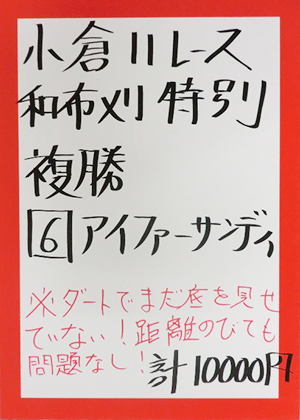 小倉11レース
和布刈特別
複勝
6アイファーサンディ
※ダートでまだ底を見せ
ていない!距離のびても
問題なし!
計10000円